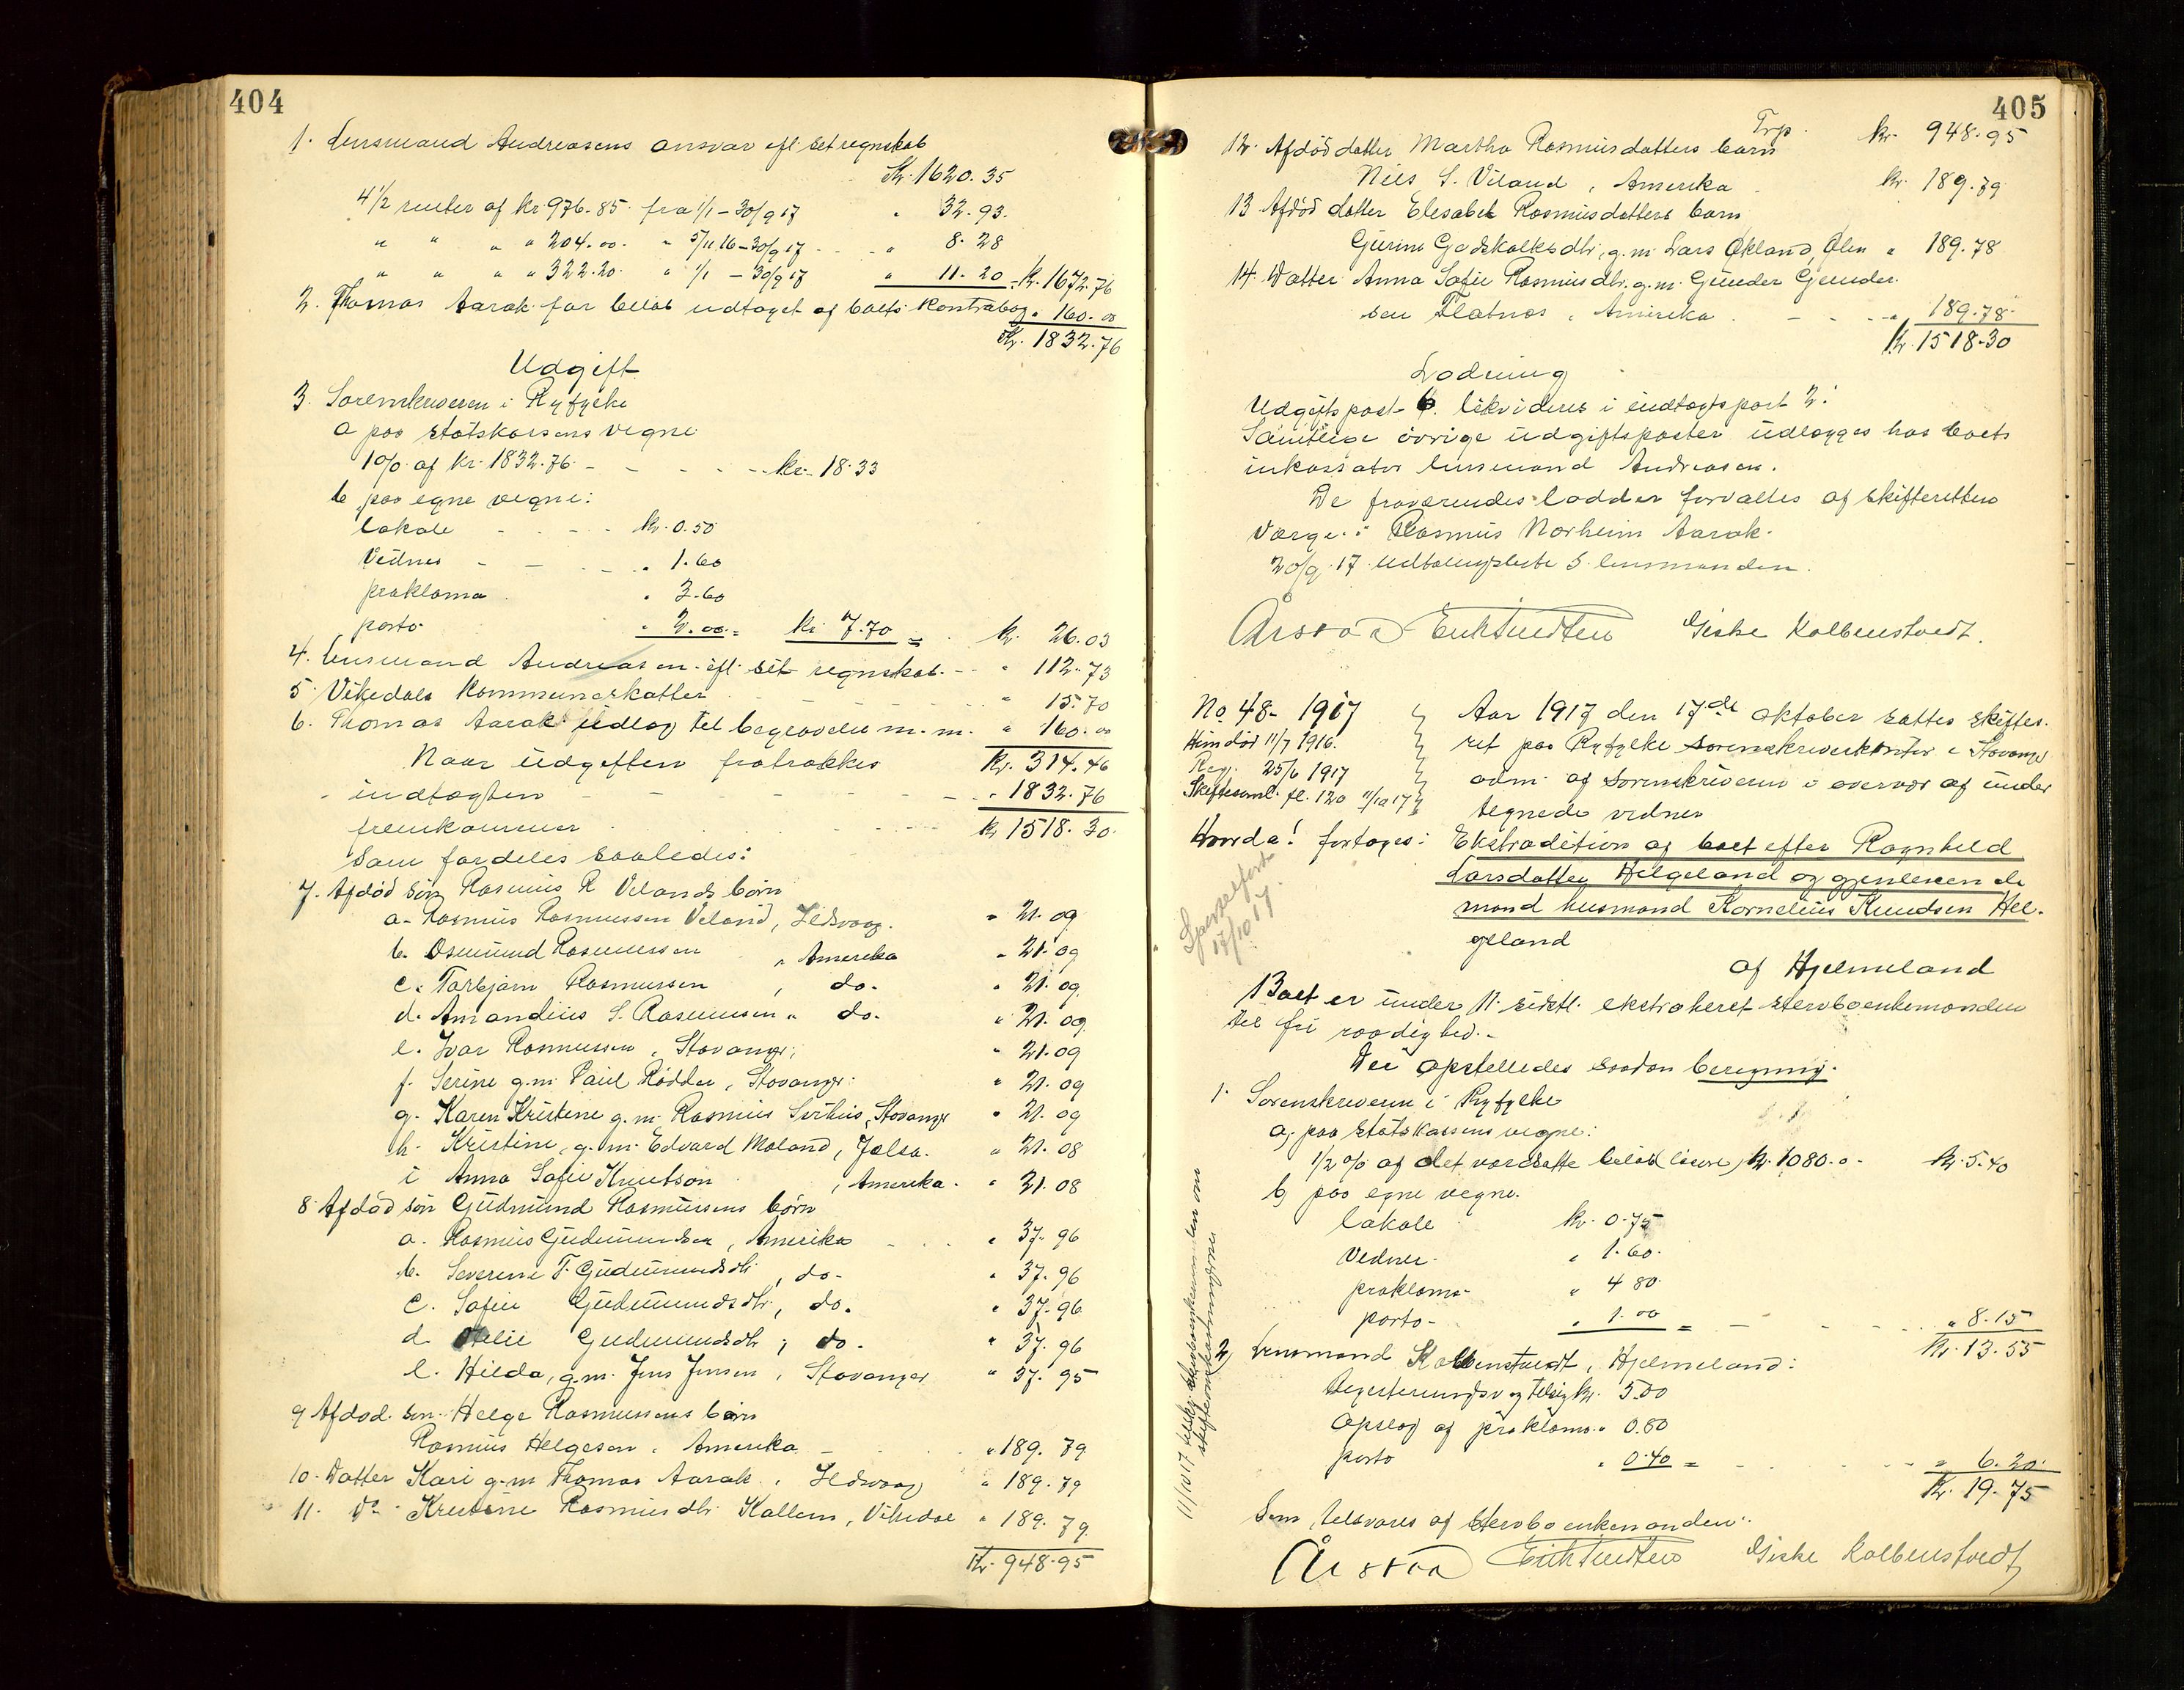 404
1. Lensmand Andreasens ansvar efl. sit regnskab
Kr. 1620.35
4½ renter af kr 976.85 fra 1/1 - 30/9 17 " 32.93.
" " " " 204.00. " 5/11 16 - 30/9 17 - - " 8.28
" " " " 322.20. " 1/1 - 30/9 17 " 11.20 = Kr. 1672.76
2. Thomas Aarak for beløb udtaget af boets kontrabog " 160.00
Kr. 1832.76
Udgift
3. Sorenskriveren i Ryfylke
a paa statskassens vegne
1% af kr. 1832.76 - - - - kr. 18.33
b paa egne vegne:
lokale - - - kr. 0.50
Vidner - - - " 1.60
proklama " 3.60
porto " 2.00 = kr 7.70 = kr. 26.03
4. Lensmand Andreasen efl. sit regnskab. - - " 112.73
5. Vikedals Kommuneskatter " 15.70
6. Thomas Aarak udlæg til begravelse m. m. " 160.00
Naar udgiften fratrækkes Kr. 314.46
indtægten - - - - - " 1832.76
fremkommer kr 1518.30
Som fordeles saaledes:
7. Afdød søn Rasmus R Velands børn
a. Rasmus Rasmussen Veland, Ilsvaag. " 21.09
b. Osmund Rasmussen " Amerika " 21.09
c. Torbjørn Rasmussen , do. " 21.09
d. Amandius S. Rasmussen " do. " 21.09
e. Ivar Rasmussen , Stavanger; " 21.09
f. Serine g.m. Paul Rødder, Stavanger: " 21.09
g. Karen Kristine g.m. Rasmus Svihus, Stavanger " 21.09
h. Kristine, g.m. Edvard Moland, Jelsa. " 21.08
i Anna Sofie Knutson , Amerika. " 21.08
8 Afdød søn Gudmund Rasmussens børn
a. Rasmus Gudmundsen, Amerika - - " 37.96
b. Severine T. Gudmundsdtr , do - " 37.96
c. Sofie Gudmundsdtr, do. " 37.96
d. Olelie Gudmundsdtr, do. " 37.96
e. Hilda, g.m. Jens Jensen, Stavanger " 37.95
9 Afdød. søn Helge Rasmussens barn
Rasmus Helgesen, Amerika - " 189.79
10. Datter Kari g.m Thomas Aarak, Ilsvaag " 189.79
11. Do Kristine Rasmusdtr Kallem, Vikedal " 189.79
Kr. 948.95
405
Trp. kr. 948.95
12. Afdød datter Martha Rasmusdatters barn
Nils S. Viland, Amerika kr. 189.79
13 Afdød datter Elesabet Rasmusdatters barn
Gurine Godskalksdtr, g.m. Lars Økland, Ølen " 189.78
14. Datter Anna Sofie Rasmusdtr. g.m. Gunder Gunder-
sen Flatnes, Amerika - - - " 189.78
Kr. 1518.30
Lodning
Udgiftspost 6. likvideres i indtægtspost 2.
Samtlige øvrige udgiftsposter udlægges hos boets
inkassator lensmand Andreasen.
De fraværendes lodder forvaltes af skifteretten
Værge: Rasmus Norheim Aarak.
20/9 17 udbetalingsliste s. lensmanden.
Giske Kolbenstvedt.
No 48 - 1917
Hun død 11/7 1916.
Reg. 25/6 1917
Skiftesaml. fl. 120 11/10 17
Aar 1917 den 17de oktober sattes skifte-
ret paa Ryfylke sorenskriverkontor i Stavanger
adm. af sorenskriveren i overvær af under
tegnede vidner
Hvorda! foretoges: Ekstradition af boet efter Ragnhild
Larsdatter Helgeland og gjenlevende
mand husmand Kornelius Knudsen Hel-
geland
af Hjelmeland
17/10 17.
Boet er under 11. sidstl. ekstraheret sterboenkemanden
til fri raadighed. -
Der opstilledes saadan beregning.
1. Sorenskriveren i Ryfylke
a, paa statskassens vegne:
1/2 % af det værdsatte beløb (løsøre) kr. 1080.0 - kr. 5.40
b, paa egne vegne.
lokale kr. 0.75
Vidner " 1.60.
proklama - " 4 80.
porto - " 1.00 = - - - " 8.15
Kr. 13.55
2, Lensmand Kolbenstvedt, Hjelmeland:
Registrering kr. 5.00
Opslag af proklama " 0.80
porto " 0.40 = - - - " 6.20.
Kr. 19.75
Som tilsvares af sterboenkemanden.
Giske Kolbenstvedt